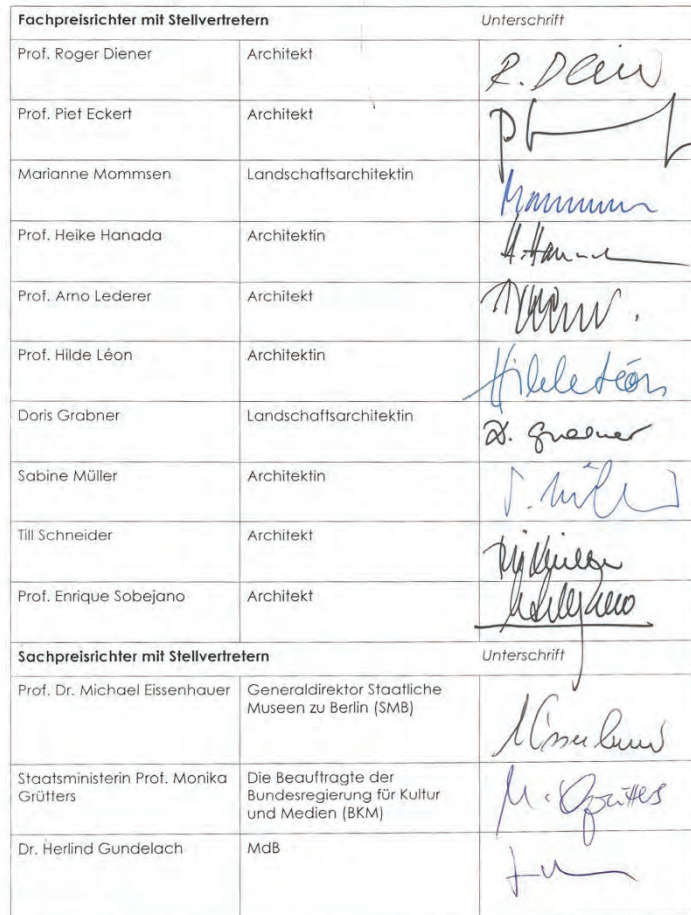 Fachpreisrichter mit Stellvertretern Unterschrift
Prof. Roger Diener Architekt
Prof. Piet Eckert Architekt
Marianne Mommsen Landschaftsarchitektin
Prof. Heike Hanada Architektin
Prof. Arno Lederer Architekt
Prof. Hilde Léon Architektin Hilde Léon
Doris Grabner Landschaftsarchitektin
Sabine Müller Architektin
Till Schneider Architekt
Prof. Enrique Sobejano Architekt
Sachpreisrichter mit Stellvertretern Unterschrift
Prof. Dr. Michael Eissenhauer Generaldirektor Staatliche
Museen zu Berlin (SMB)
Staatsministerin Prof. Monika Die Beauftragte der
Grütters Bundesregierung für Kultur
und Medien (BKM) M. Grütters
Dr. Herlind Gundelach MdB